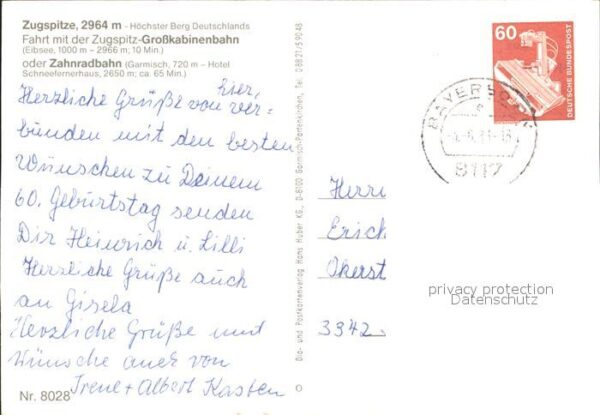 Zugspitze, 2964 m - Höchster Berg Deutschlands
Fahrt mit der Zugspitz-Großkabinenbahn
(Eibsee, 1000 m – 2966 m; 10 Min.)
oder Zahnradbahn (Garmisch, 720 m – Hotel
Schneefernerhaus, 2650 m; ca. 65 Min.)
hier,
Herzliche Grüße von ver=
bunden mit den besten
Wünschen zu Deinem
60. Geburtstag senden
Dir Heinrich u. Lilli
Herzliche Grüße auch
an Gisela
Herzliche Grüße und
Wünsche auch von
Irene + Albert Kasten
Nr. 8028
Bio- und Postkartenverlag Hans Huber KG., D-8100 Garmisch-Partenkirchen, Tel. 0 88 21/5 90 46
60
DEUTSCHE BUNDESPOST
8112
Herrn
Erich
Okerst
3342
privacy protection
Datenschutz